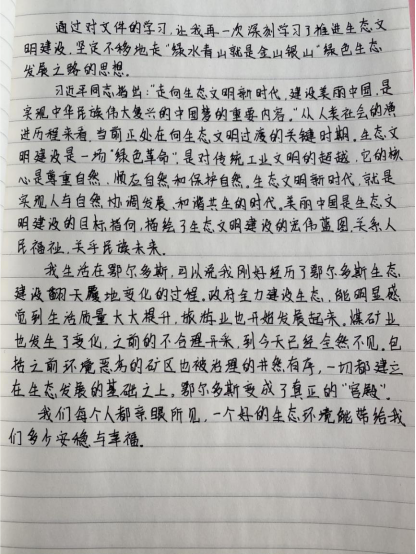 通过对文件的学习，让我再一次深刻学习了推进生态文
明建设，坚定不移地走“绿水青山就是金山银山”绿色生态
发展之路的思想。
习近平同志指出：“走向生态文明新时代，建设美丽中国，是
实现中华民族伟大复兴的中国梦的重要内容。”从人类社会的演
进历程来看，当前正处在向生态文明过渡的关键时期。生态文
明建设是一场“绿色革命”，是对传统工业文明的超越，它的核
心是尊重自然，顺应自然和保护自然。生态文明新时代，就是
实现人与自然，协调发展，和谐共生的时代。美丽中国是生态文
明建设的目标指向，描绘了生态文明建设的宏伟蓝图，关系人
民福祉，关乎民族未来。
我生活在鄂尔多斯，可以说我刚好经历了鄂尔多斯生态
建设翻天覆地变化的过程。政府全力建设生态，能明显感
觉到生活质量大大提升，旅游业也开始发展起来。煤矿业
也发生了变化，之前的不合理开采，到今天已经全然不见。包
括之前环境恶劣的矿区也被治理的井然有序，一切都建立
在生态发展的基础之上。鄂尔多斯变成了真正的“宫殿”。
我们每个人都亲眼所见，一个好的生态环境能带给我
们多少安稳与幸福。